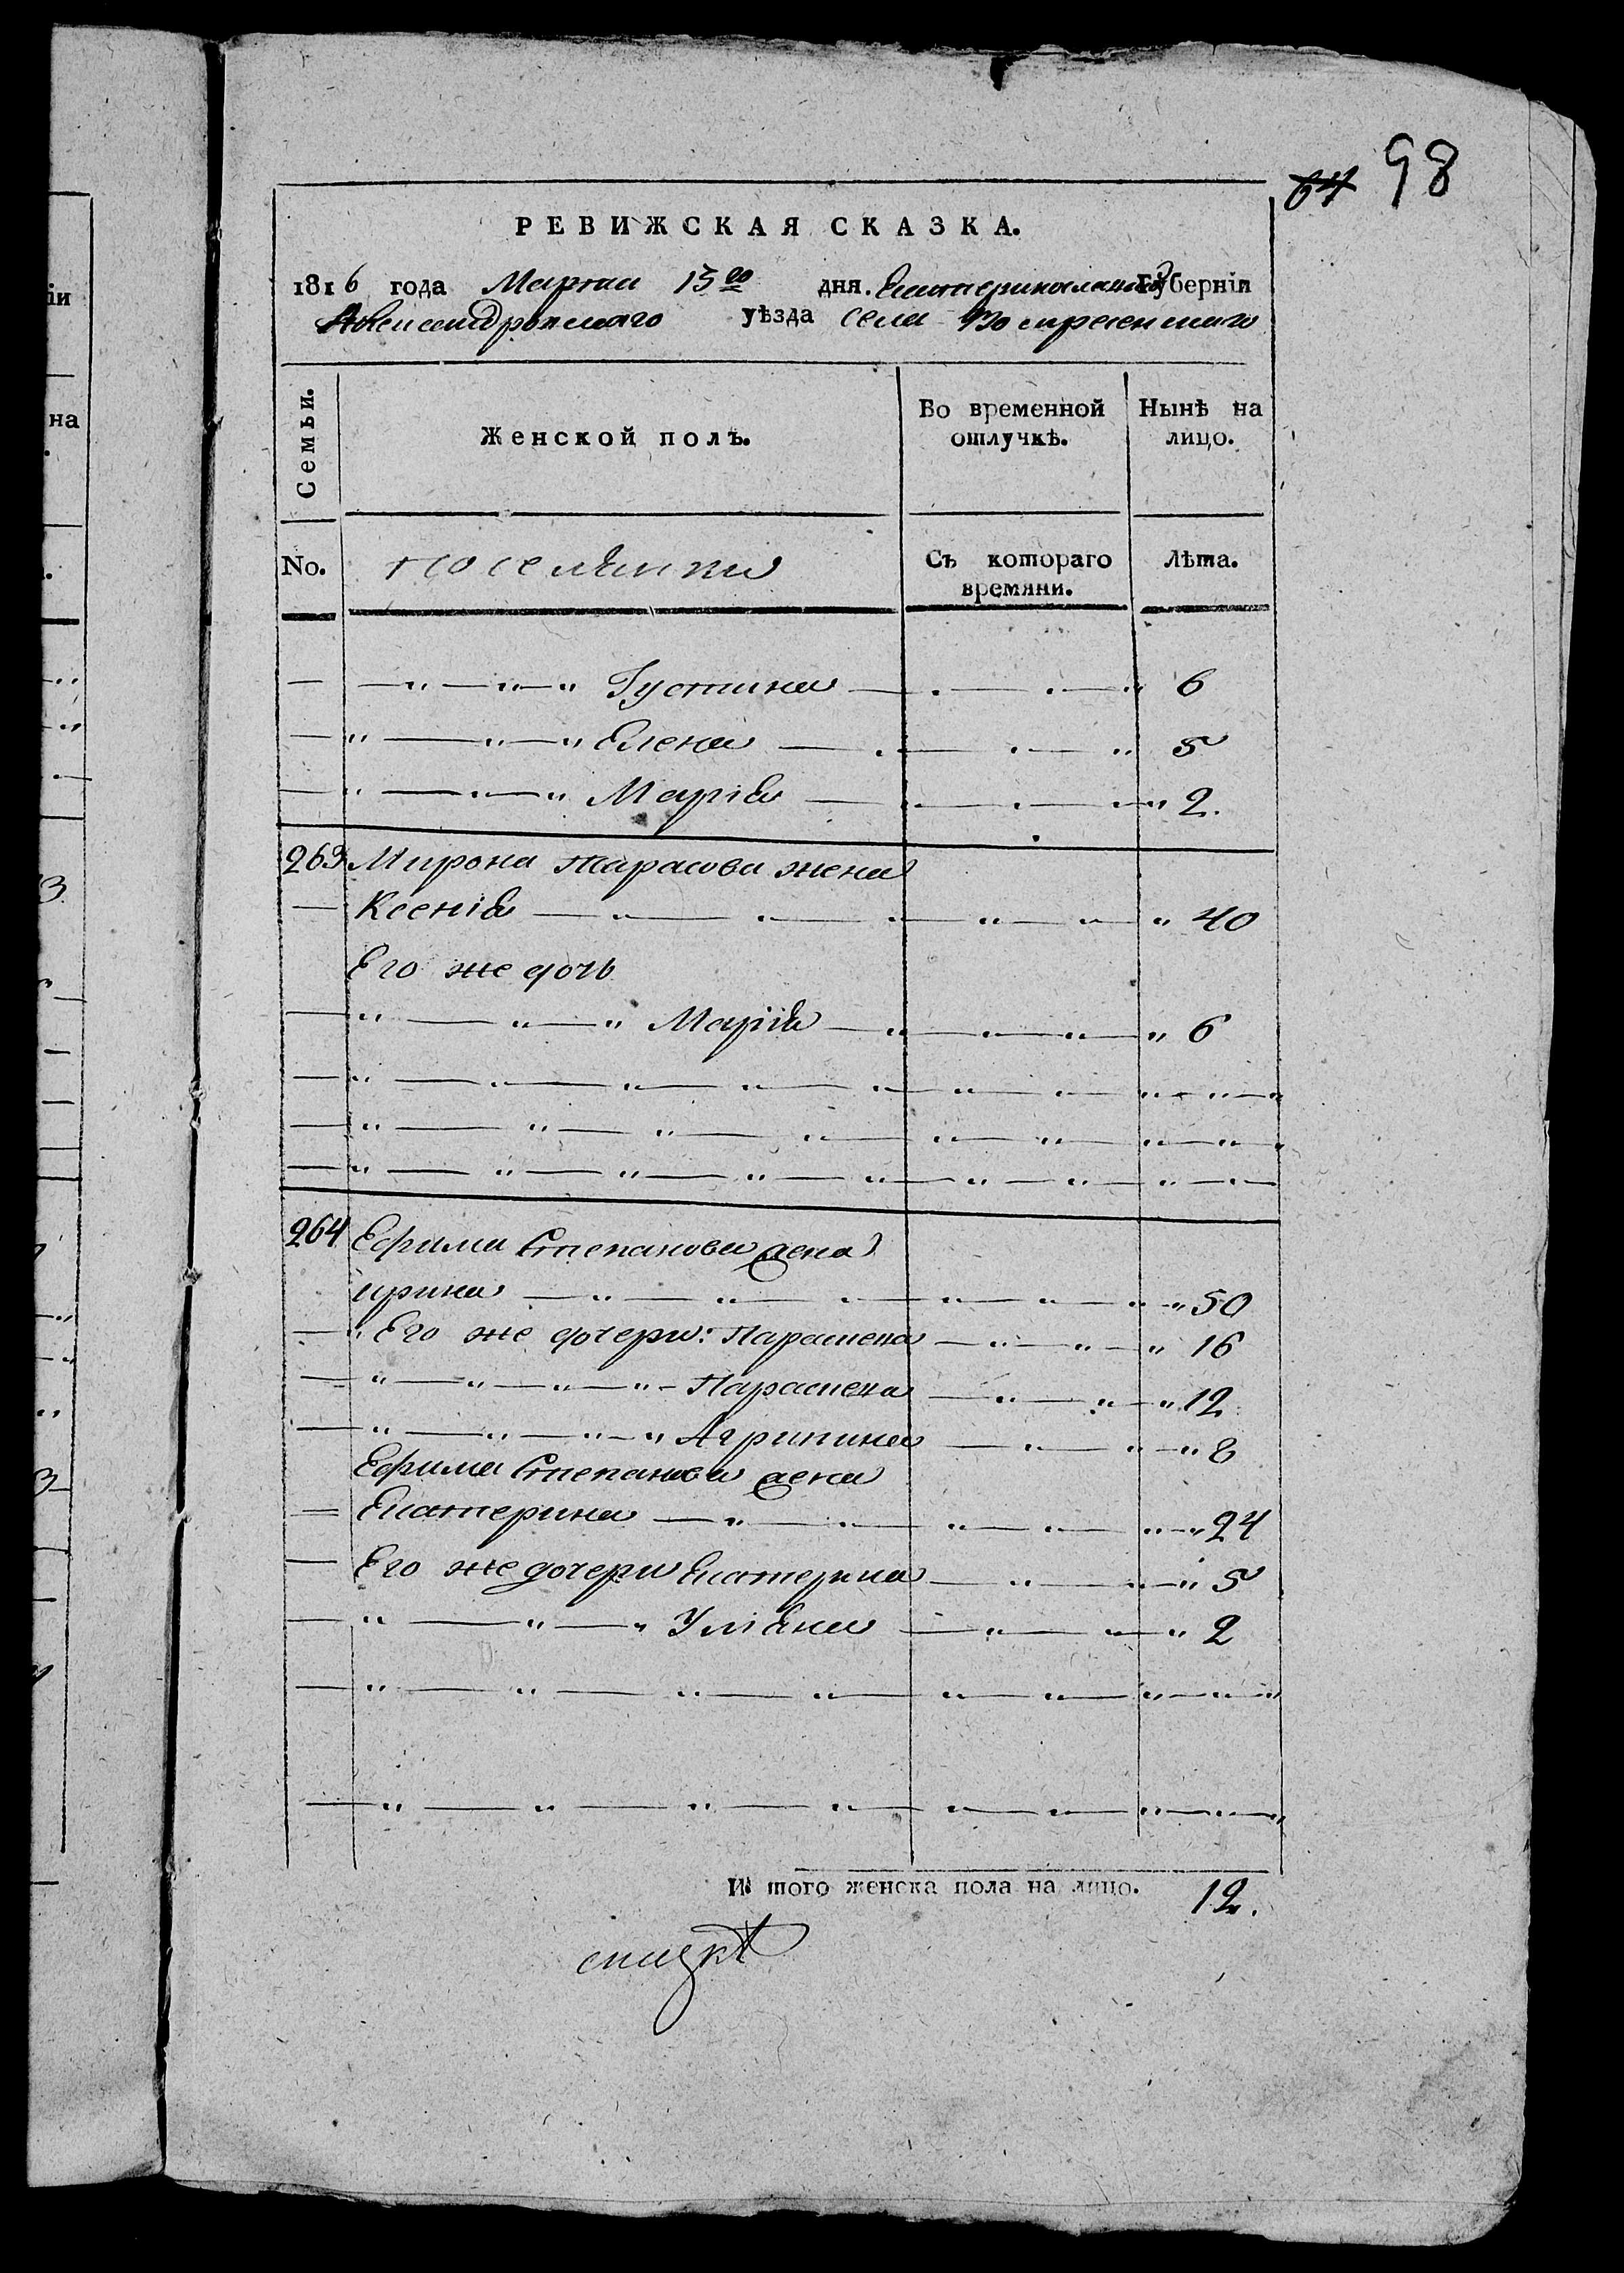 64 98
РЕВИЖСКАЯ СКАЗКА.
1816 года Марта 15го дня. Екатеринославской Губерніи
Александровскаго уѣзда села Воскресенскаго
Семьи. Женской полъ. Во временной отлучкѣ. Нынѣ на лицо.
No. поселянки Съ котораго времяни. Лѣта.
— " — " — " Густина — " — " — " 6
— " — " — " Елена — " — " — " 5
— " — " — " Марія — " — " — " 2.
263 Мирона Тарасова жена
— Ксенія — " — " — " — " — " — " 40
Его же дочь
— " — " — " Марія — " — " — " — " 6
— " — " — " — " — " — " — " — " — " — "
— " — " — " — " — " — " — " — " — "
— " — " — " — " — " — " — " — " — " —
264 Ефима Степанова жена
ирина — " — " — " — " — " — " — " 50
— " Его же дочери: Парасцева — " — " — " 16
— " — " — " — " — Парасцева — " — " — " 12
— " — " — " — " Агрипина — " — " — " 8
Ефима Степанова жена
— Екатерина — " — " — " — " — " — " 24
— Его же дочери Екатерина — " — " — " 5
— " — " — " Уліяна — " — " — " 2
— " — " — " — " — " — " — " — " — "
— " — " — " — " — " — " — " — " — "
И того женска пола на лицо. 12.